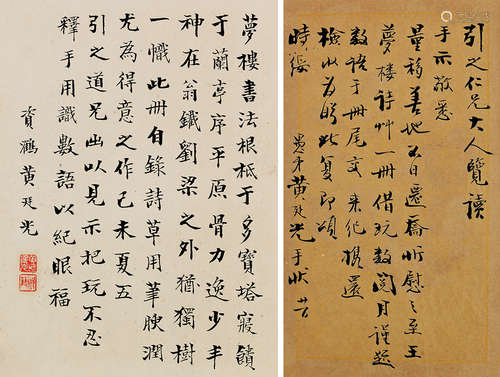 引之仁兄大人覽讀
手示敬悉
量移善地不日遷喬昕慰之至王
夢樓詩艸一冊借玩數閱月謹題
數語于冊尾交來伻攜還
檢收為盼此复即頌
時綏
愚弟黃廷光手狀
夢樓書法根柢于多寶塔寢饋
于蘭亭序平原骨力逸少丰
神在翁鐵劉梁之外猶獨樹
一幟此冊自錄詩草用筆腴潤
尤為得意之作己未夏五
引之道兄出以見示把玩不忍
釋手用識數語以紀眼福
黃廷光